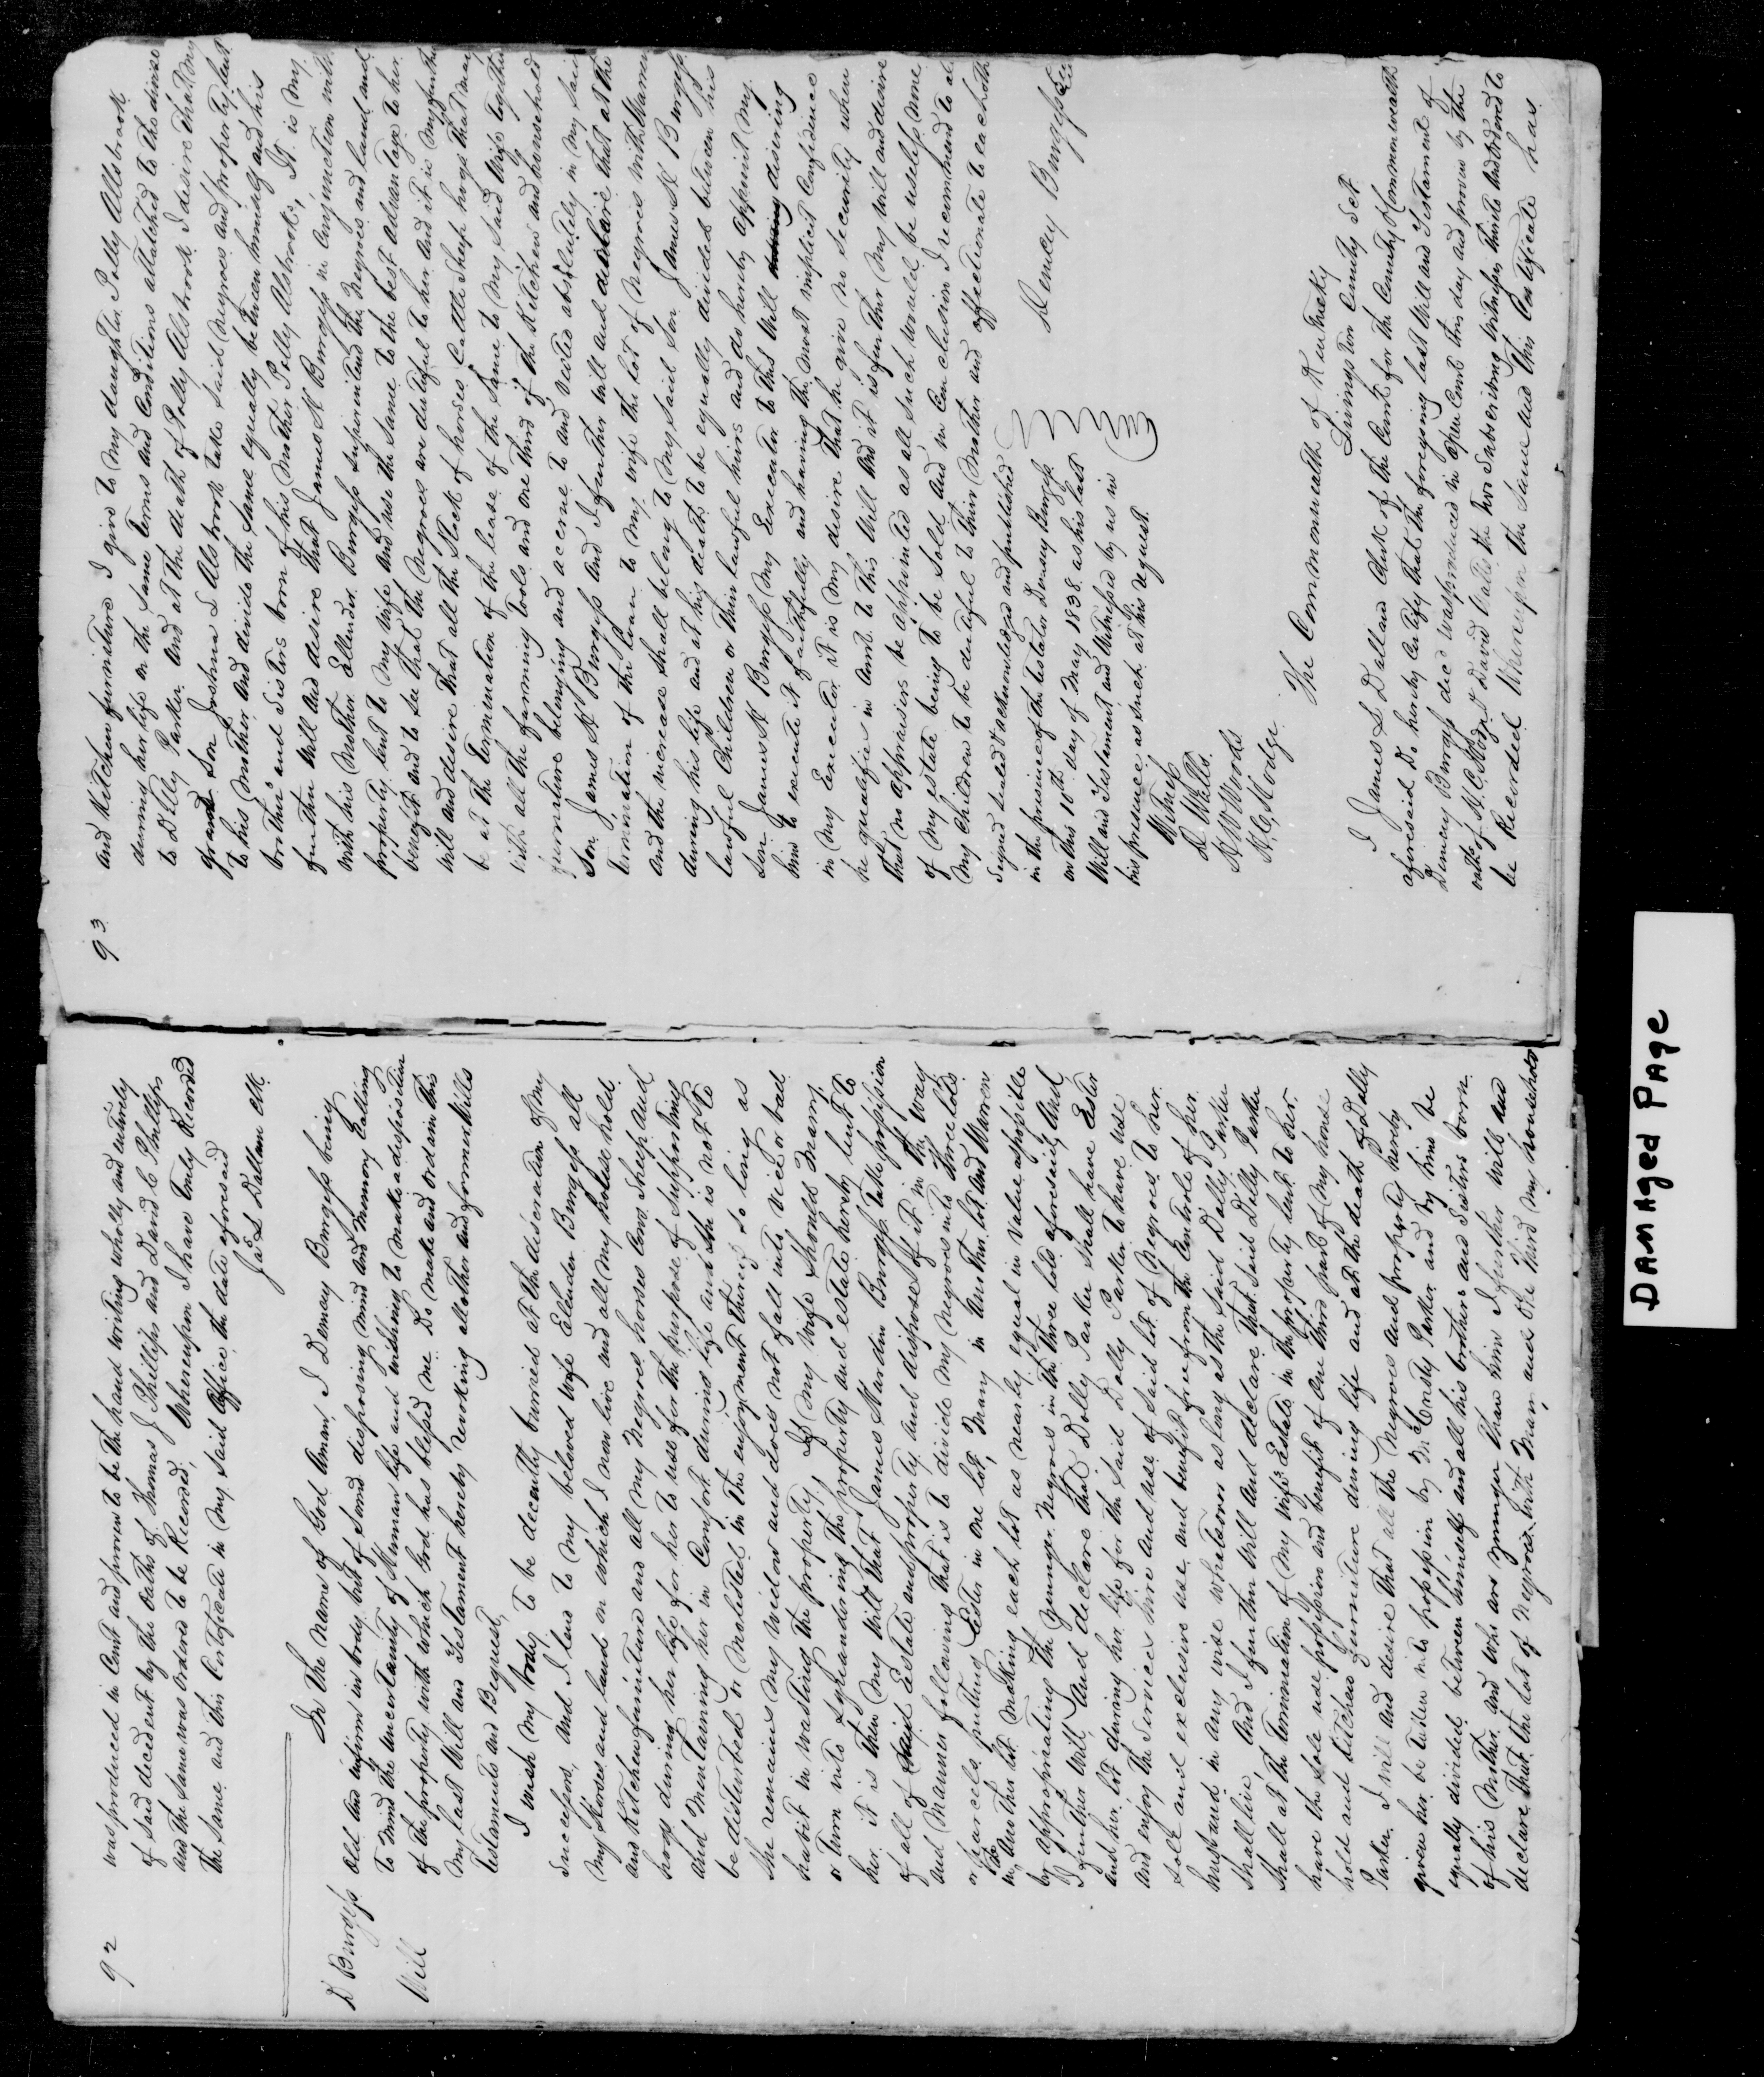 92
was produced in Court and proven to be the hand writing wholly and entirely
of said decedent by the oaths of Thomas J Phillips and David C Phillips
and the same was ordered to be Recorded, Whereupon I have truly Recorded
the same and this Certificate in my said office the date aforesaid
Jas L Dallam clk.
D Burgess
Will
In the name of God Aman, I Demcy Burgess being
old and infirm in body but of Sound disposing mind and memory Calling
to mind the uncertainty of Human life and wishing to make a disposition
of the property with which God has blessed me Do make and ordain this
my last Will and Testament hereby revoking all other and former Wills
Testaments and Bequest,
I wish my body to be decently burried at the discration of my
Successors, and I lend to my beloved wife Ellender Burgess all
my Horses and land on which I now live and all my house hold
and Kitchen furniture and all my Negroes horses Cows Sheep and
hogs during her life for her to use for the purpose of supporting
and Mentaining her in Comfort during life and she is not to
be disturbed or molested in the enjoyment thereof so long as
she remains my widow and does not fall into vice or bad
habit in wasting the property, If my wife should marry,
or turn into squandering the property and estate hereby lent to
her it is then my Will that James Hardin Burgess take possession
of all of said Estate and property and dispose of it in the way
and manner following that is to divide my negroes into three lots
or parcels, putting Ester in one lot, Mary in another lot and Warren
in another lot making each lot as nearly equal in value as possible
by appropriating the younger Negroes in the three lots aforesaid, and
I further Will and declare that Dolly Parker shall have Ester
and her lot during her life for the said Dolly Parker to have use
and enjoy the Services hire and use of said lot of Negroes to her
sole and exclusive use and benefit free from the Controle of her
husband in any wise whatsoever as long as the said Dolly Parker
shall live, And I further will and declare that said Dolly Parker
shall at the termination of my wifes Estate in the property lent to her,
have the sole use possession and benefit of one third part of my house
hold and kitchen furniture during life and at the death of Dolly
Parker I will and desire that all the Negroes and property hereby
given her be taken into possession by McCrady Parker and by him be
equally divided between himself and all his brothers and Sisters born
of his Mother and who are younger than him I further will and
declare that the lot of negroes with Mary and one third my household
93
and Kitchen furniture I give to my daughter Polly Allsbrook
during her life on the same Terms and Conditions attatched to the devise
to Dolly Parker And at the death of Polly Alsbrook I desire that my
grand Son Joshua L Alsbrook take said negroes and property lent
to his Mother and divide the same equally between himself and his
brothers and Sisters born of his Mother Polly Alsbrook, It is my
further Will and desire that James H Burgess in Conjunction with
with his Mother Ellender Burgess superintend the Negroes and land and
property lent to my wife and use the same to the best advantage to her
benefit and to see that the Negroes are dutiful to her and it is my further
Will and desire that all the Stock of horses Cattle Sheep hogs that may
be at the Termination of the lease of the same to my said wife together
with all the farming tools and one third of the Kitchen and household
furniture belonging and accrue to and vested absolutely in my said
Son James H Burgess And I further will and declare that at the
termination of the loan to my wife the lot of Negroes with Warren
and the increase shall belong to my said Son James H Burgess
during his life and at his death to be equally divided between his
lawful Children or their lawful heirs and do hereby appoint my
Son James H Burgess my Executor to this Will desiring
him to execute it faithfully and having the most implicit Confidence
in my Executor it is my desire that he give no security when
he qualifies in Court to this Will and it is further my will and desire
that no appraisers be appointed as all such would be useless none
of my estate being to be sold And in Conclusion I recommend to all
my Children to be dutiful to their Mother and affectionate to each other
Signed sealed & acknowledged and published
in the presence of the testator Demcy Burgess
on this 10th day of May 1838. as his last
Will and Testament and Witnessed by us in
his presence as such at his request.
Demcy Burgess
Witness
D Watts.
H W Woods
H. C. Hodge
The Commonwealth of Kentucky
Livingston County Sct
I James L Dallam Clerk of the Court for the County & Commonwealth
aforesaid Do hereby Certify that the foregoing last Will and Testament of
Demcy Burgess decd was produced in open Court this day and proven by the
oaths of H. C. Hodge & David Watts the two Subscribing witnesses thereto and ordered to
be Recorded Whereupon the same and this Certificate has
DAMAged PAge